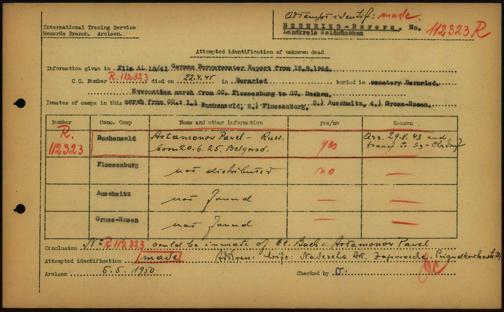 Attempt identif: made.
International Tracing Service
Records Branch. Arolsen.
BERNRIED-Bayern, No. 112323 R
Landkreis
Attempted identification of unknown dead
Information given in File AL 18/41 German Bürgermeister Report from
C.C. Number R.112323 died on 22.4.45 in Bernried buried in cemetery Bernried.
Evacuation march from CC. Flossenburg to CC. Dachau.
Inmates of camps in this march from CC. 1.) Buchenwald, 2.) Flossenburg, 3.) Auschwitz, 4.) Gross-Rosen.
Number Conc. Camp Name and other information yes/no Reason
R. 112323 Buchenwald Artamonov Pavel - Russ. born 20.6.25, Belgorod. yes Arr. 29.8.43 and transf. to
Flossenburg not distributed no —
Auschwitz not found — —
Gross-Rosen not found — —
Conclusion No R 112323 could be inmate of CC. Buch. Artamonov Pavel
Attempted identification made Adress: wife: Nadescha Art.
Arolsen 5.5.1950 Checked by